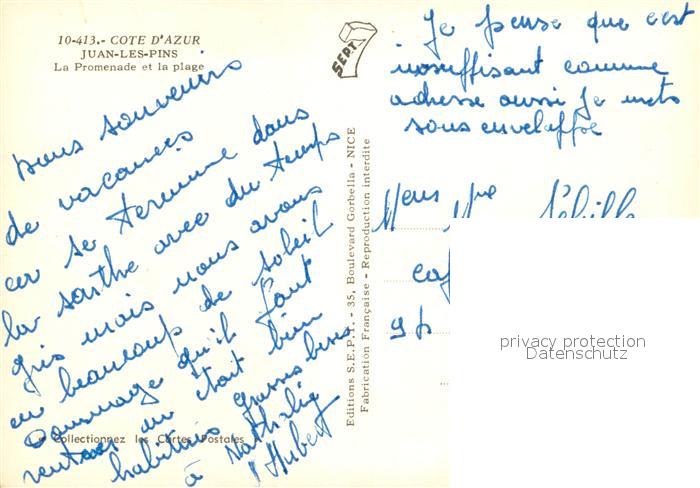 10-413.- COTE D'AZUR
JUAN-LES-PINS
La Promenade et la plage
SEPT
Je pense que c'est
insuffisant comme
adresse aussi je mets
sous enveloppe
bons souvenirs
de vacances
car se termine dans
la sarthe avec du temps
gris mais nous avons
eu beaucoup de soleil
Dommage qu'il faut
rentrer on était bien
habitués grosses bises
à Nathalie
Hubert
Collectionnez les Cartes Postales
Editions S.E.P.T. - 35, Boulevard Gorbella - NICE
Fabrication Française - Reproduction interdite
Mens Mme
privacy protection
Datenschutz